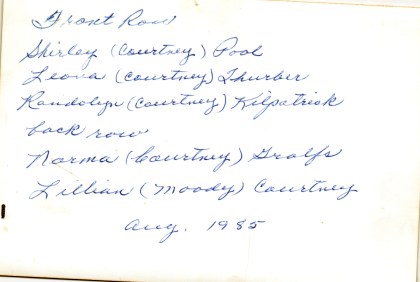 Front Row
Shirley (Courtney) Pool
Leona (Courtney) Thurber
Randolyn (Courtney) Kilpatrick
back row
Norma (Courtney) Gralfs
Lillian (Moody) Courtney
Aug. 1985